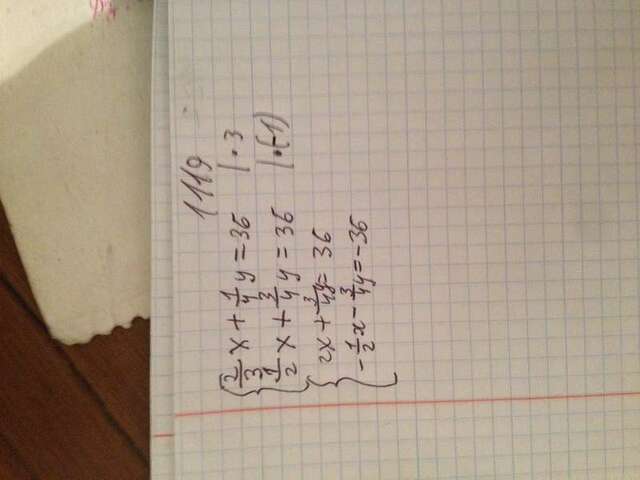 1119
{ 2/3 x + 1/4 y = 36 | · 3
{ 1/2 x + 3/4 y = 36 | · (-1)
{ 2x + 3/4 y = 36
{ -1/2 x - 3/4 y = -36